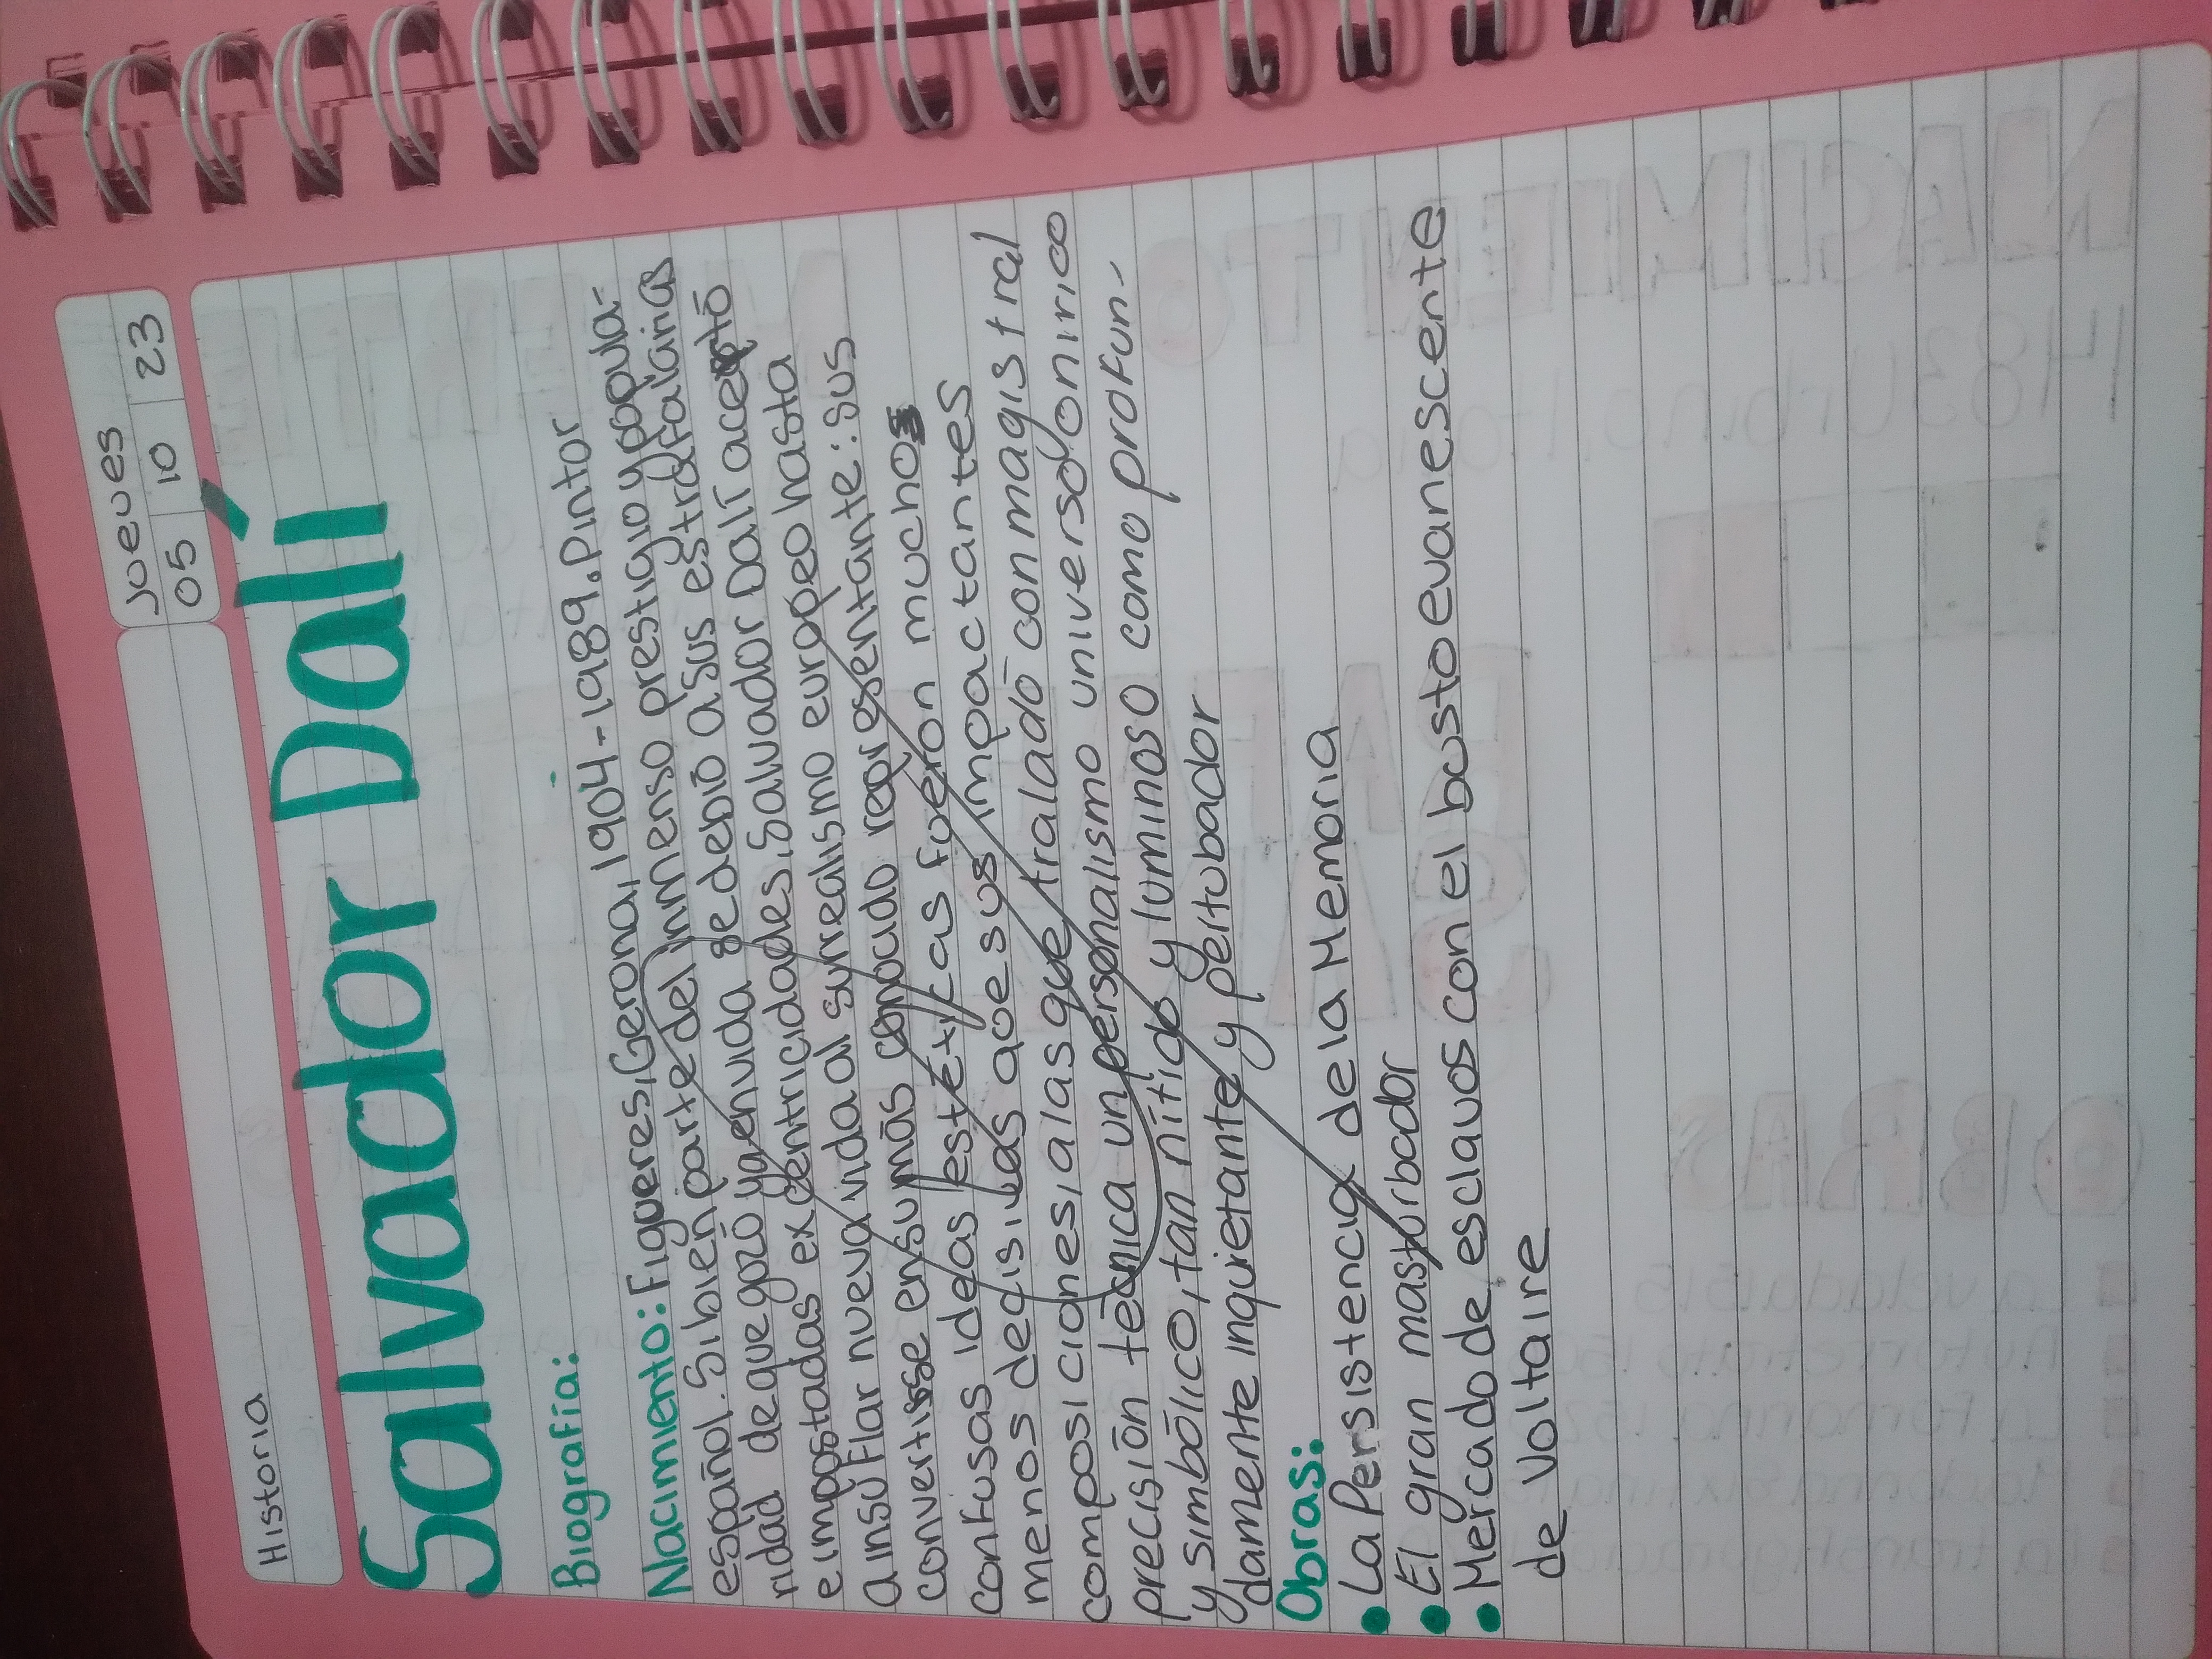 Historia
Jueves
05 10 23
Salvador Dalí
Biografía:
Nacimiento: Figueres, Gerona, 1904-1989. Pintor
español. Si bien parte del inmenso prestigio y popula-
ridad de que gozó ya en vida se debió a sus estrafalarias
e impostadas excentricidades, Salvador Dalí acertó
a insuflar nueva vida al surrealismo europeo hasta
convertirse en su más conocido representante: sus
confusas ideas estéticas fueron muchos
menos decisivas que sus impactantes
composiciones, a las que traladó con magistral
precisión técnica un personalismo universo onírico
y simbólico, tan nítido y luminoso como profun-
damente inquietante y pertubador
Obras:
• La Persistencia de la Memoria
• El gran masturbador
• Mercado de esclavos con el busto evanescente
de Voltaire